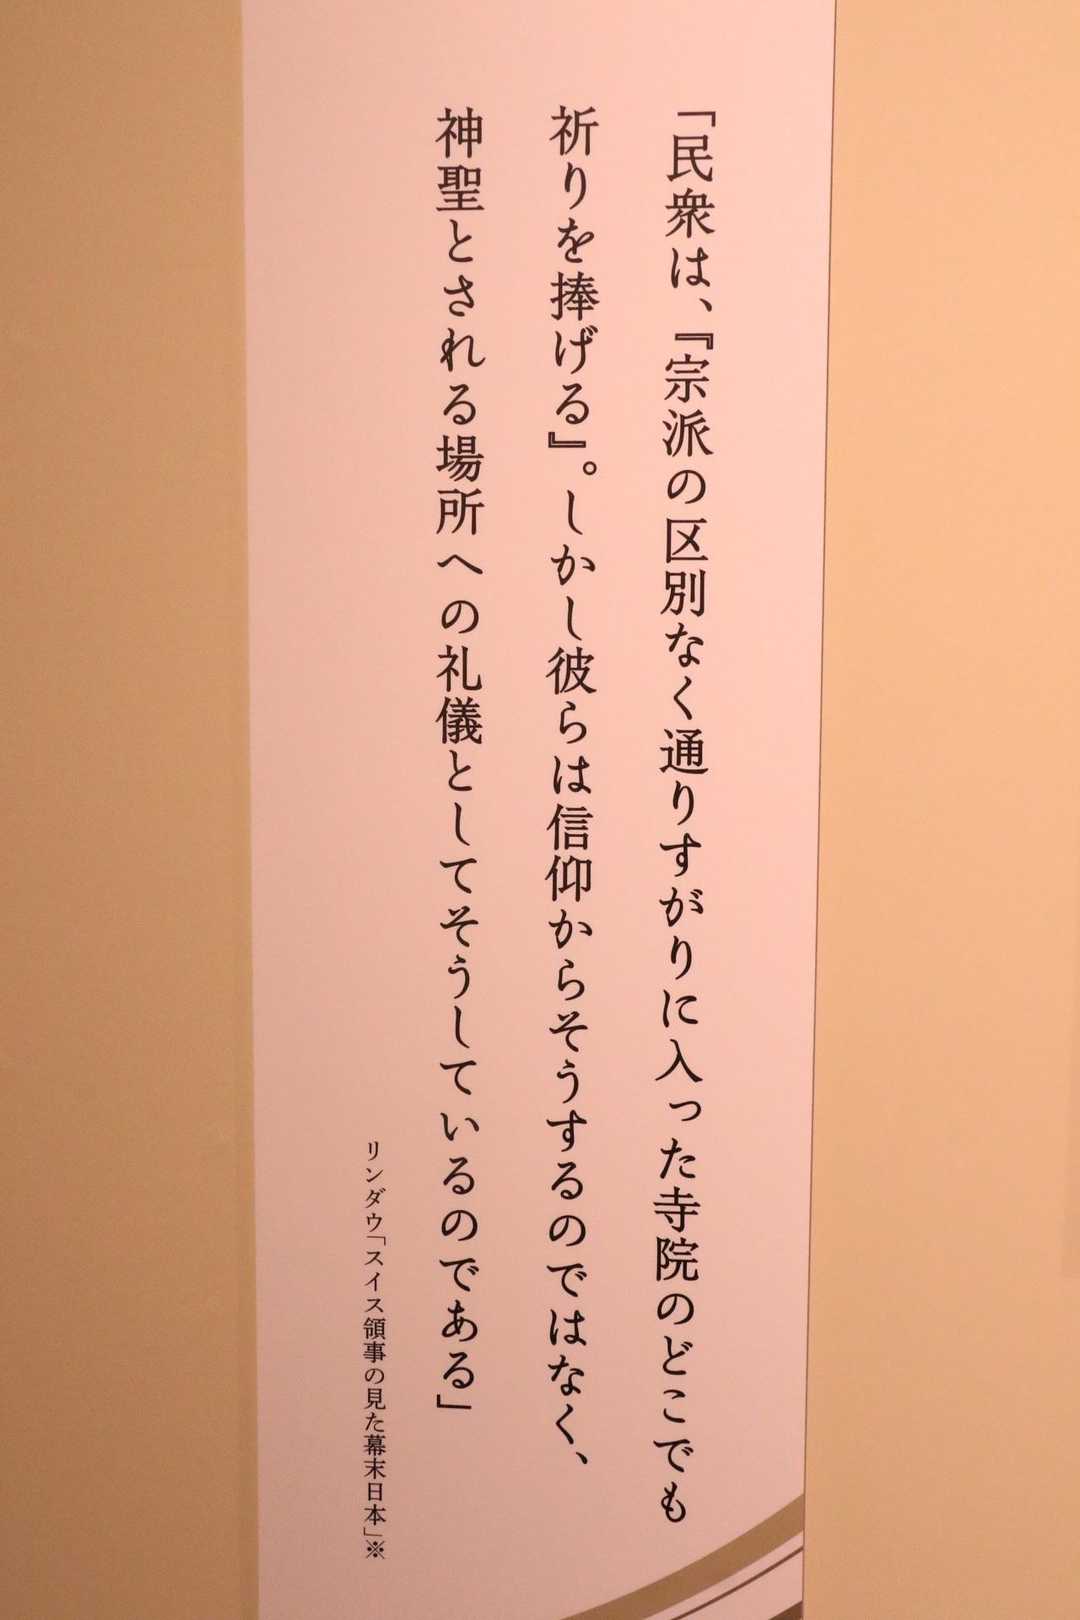 「民衆は、『宗派の区別なく通りすがりに入った寺院のどこでも
祈りを捧げる』。しかし彼らは信仰からそうするのではなく、
神聖とされる場所への礼儀としてそうしているのである」
リンダウ「スイス領事の見た幕末日本」※